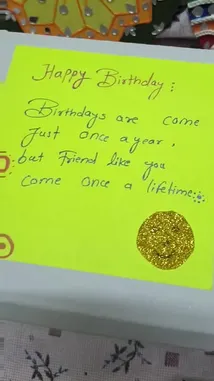 Happy Birthday :
Birthdays are come
Just once a year,
but Friend like you
come once a lifetime